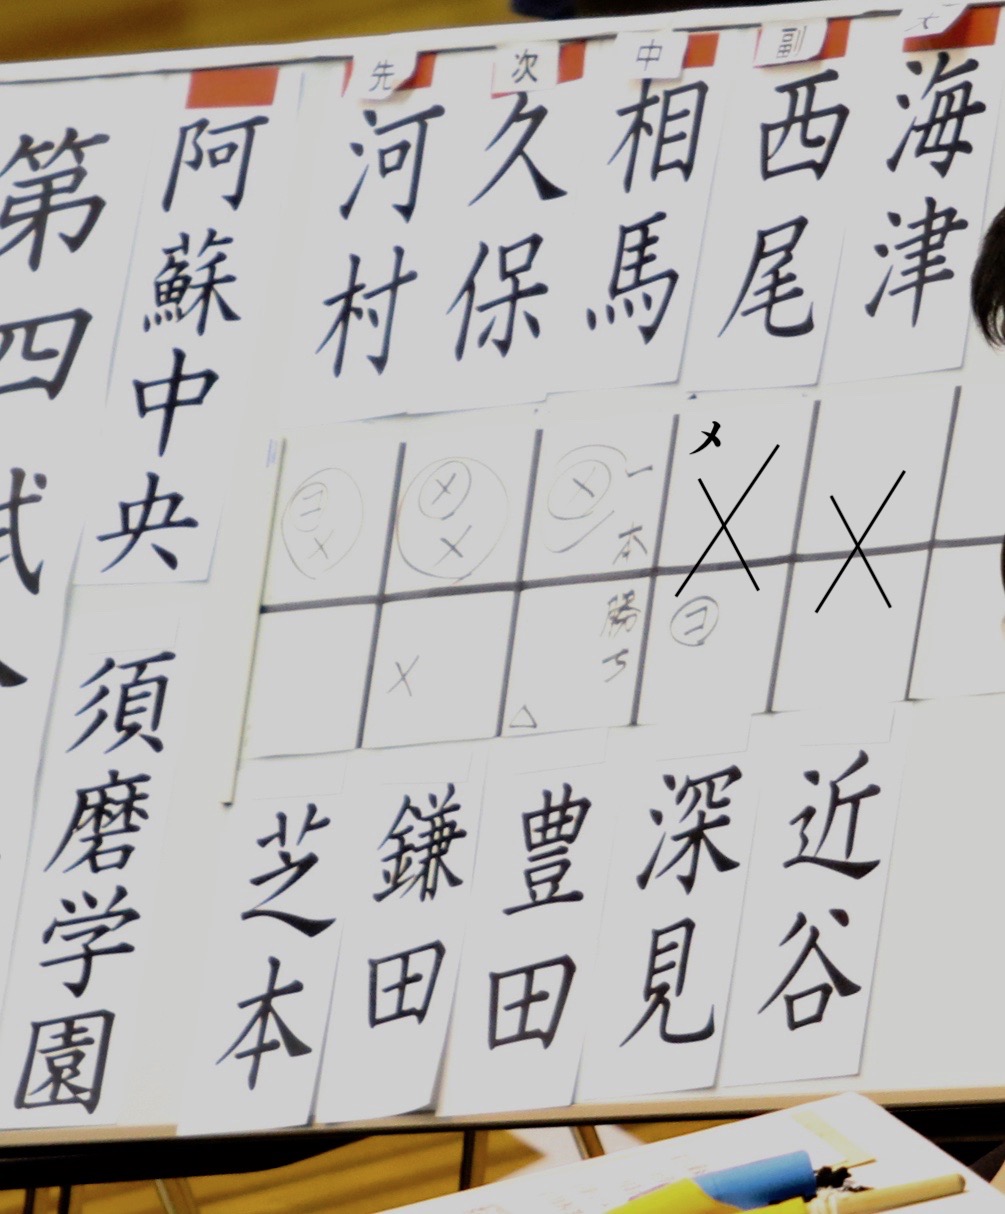 大 海津
副 西尾 メ ×
中 相馬 メ 一本勝ち
次 久保 メ メ
先 河村 コ メ
阿蘇中央
第四試
近谷
深見 コ
豊田 △
鎌田 メ
芝本
須磨学園